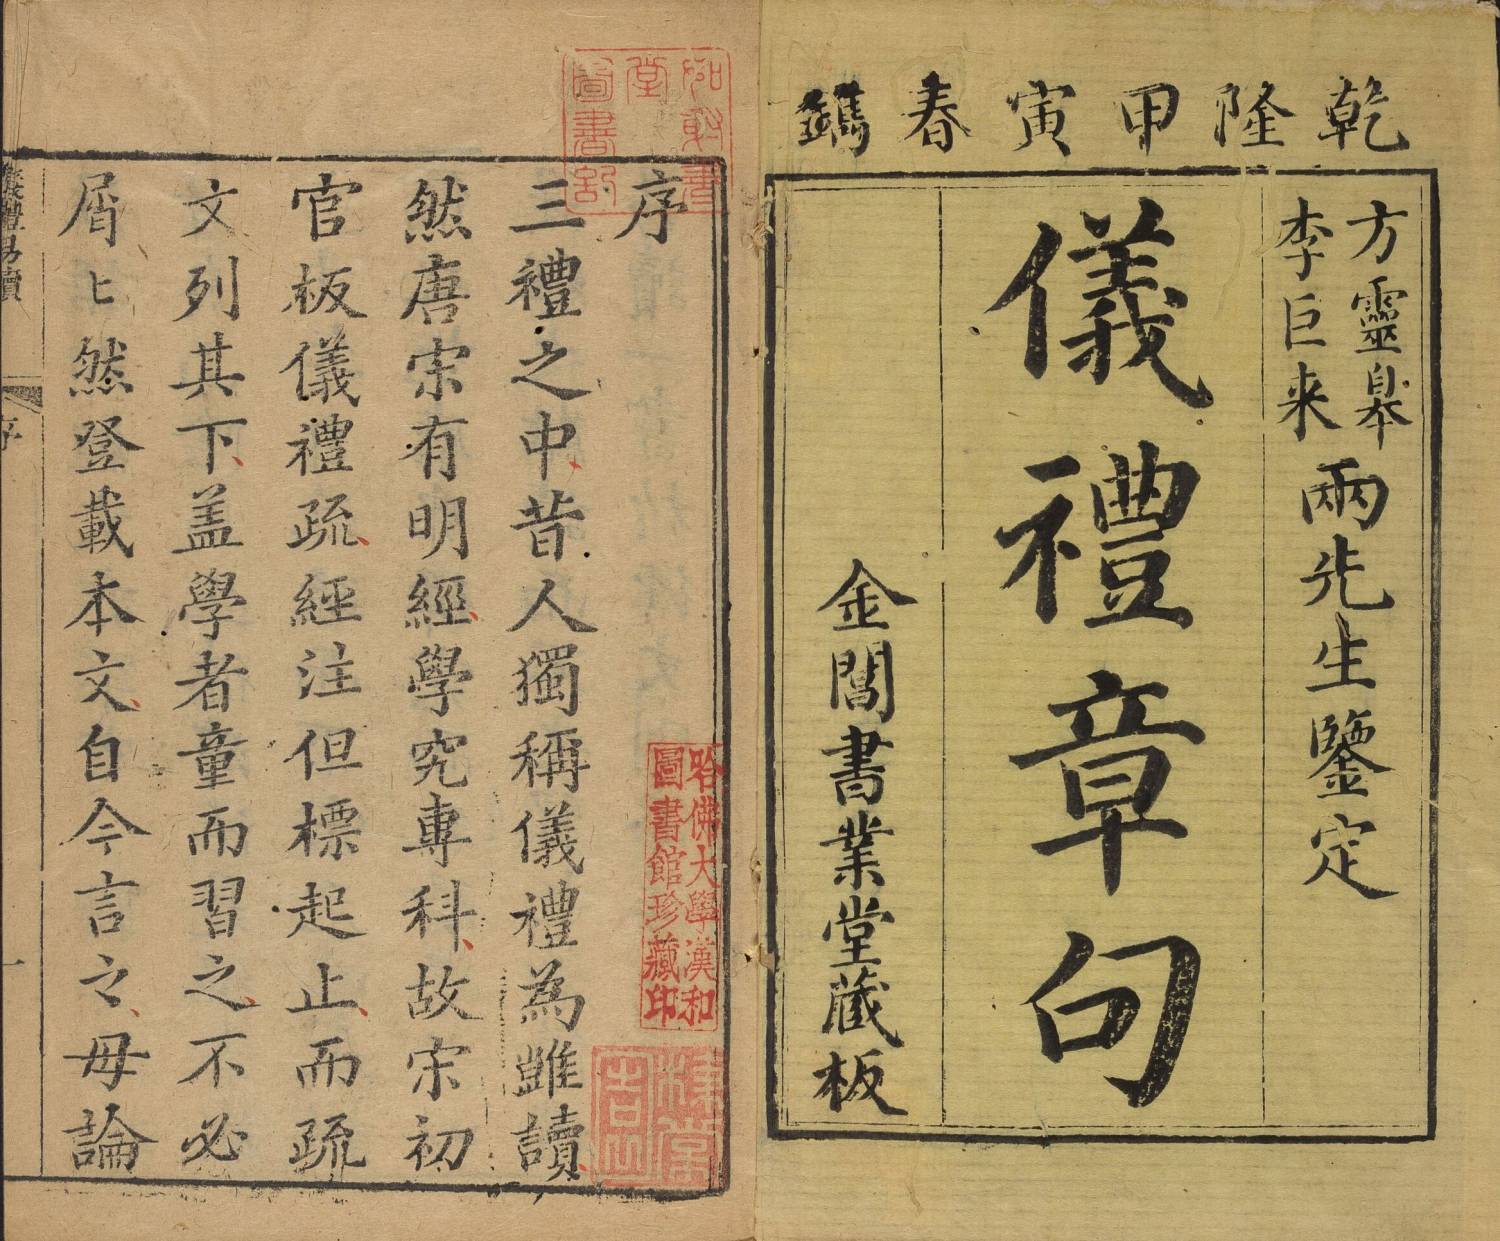 乾隆甲寅春鐫
方靈皋
李巨来
兩先生鑒定
儀禮章句
金閶書業堂藏板
序
三禮之中昔人獨稱儀禮為難讀
然唐宋有明經學究專科故宋初
官板儀禮疏經注但標起止而疏
文列其下蓋學者童而習之不必
屑〻然登載本文自今言之毋論
儀禮易讀
序
一
哈佛大學漢和
圖書館珍藏印